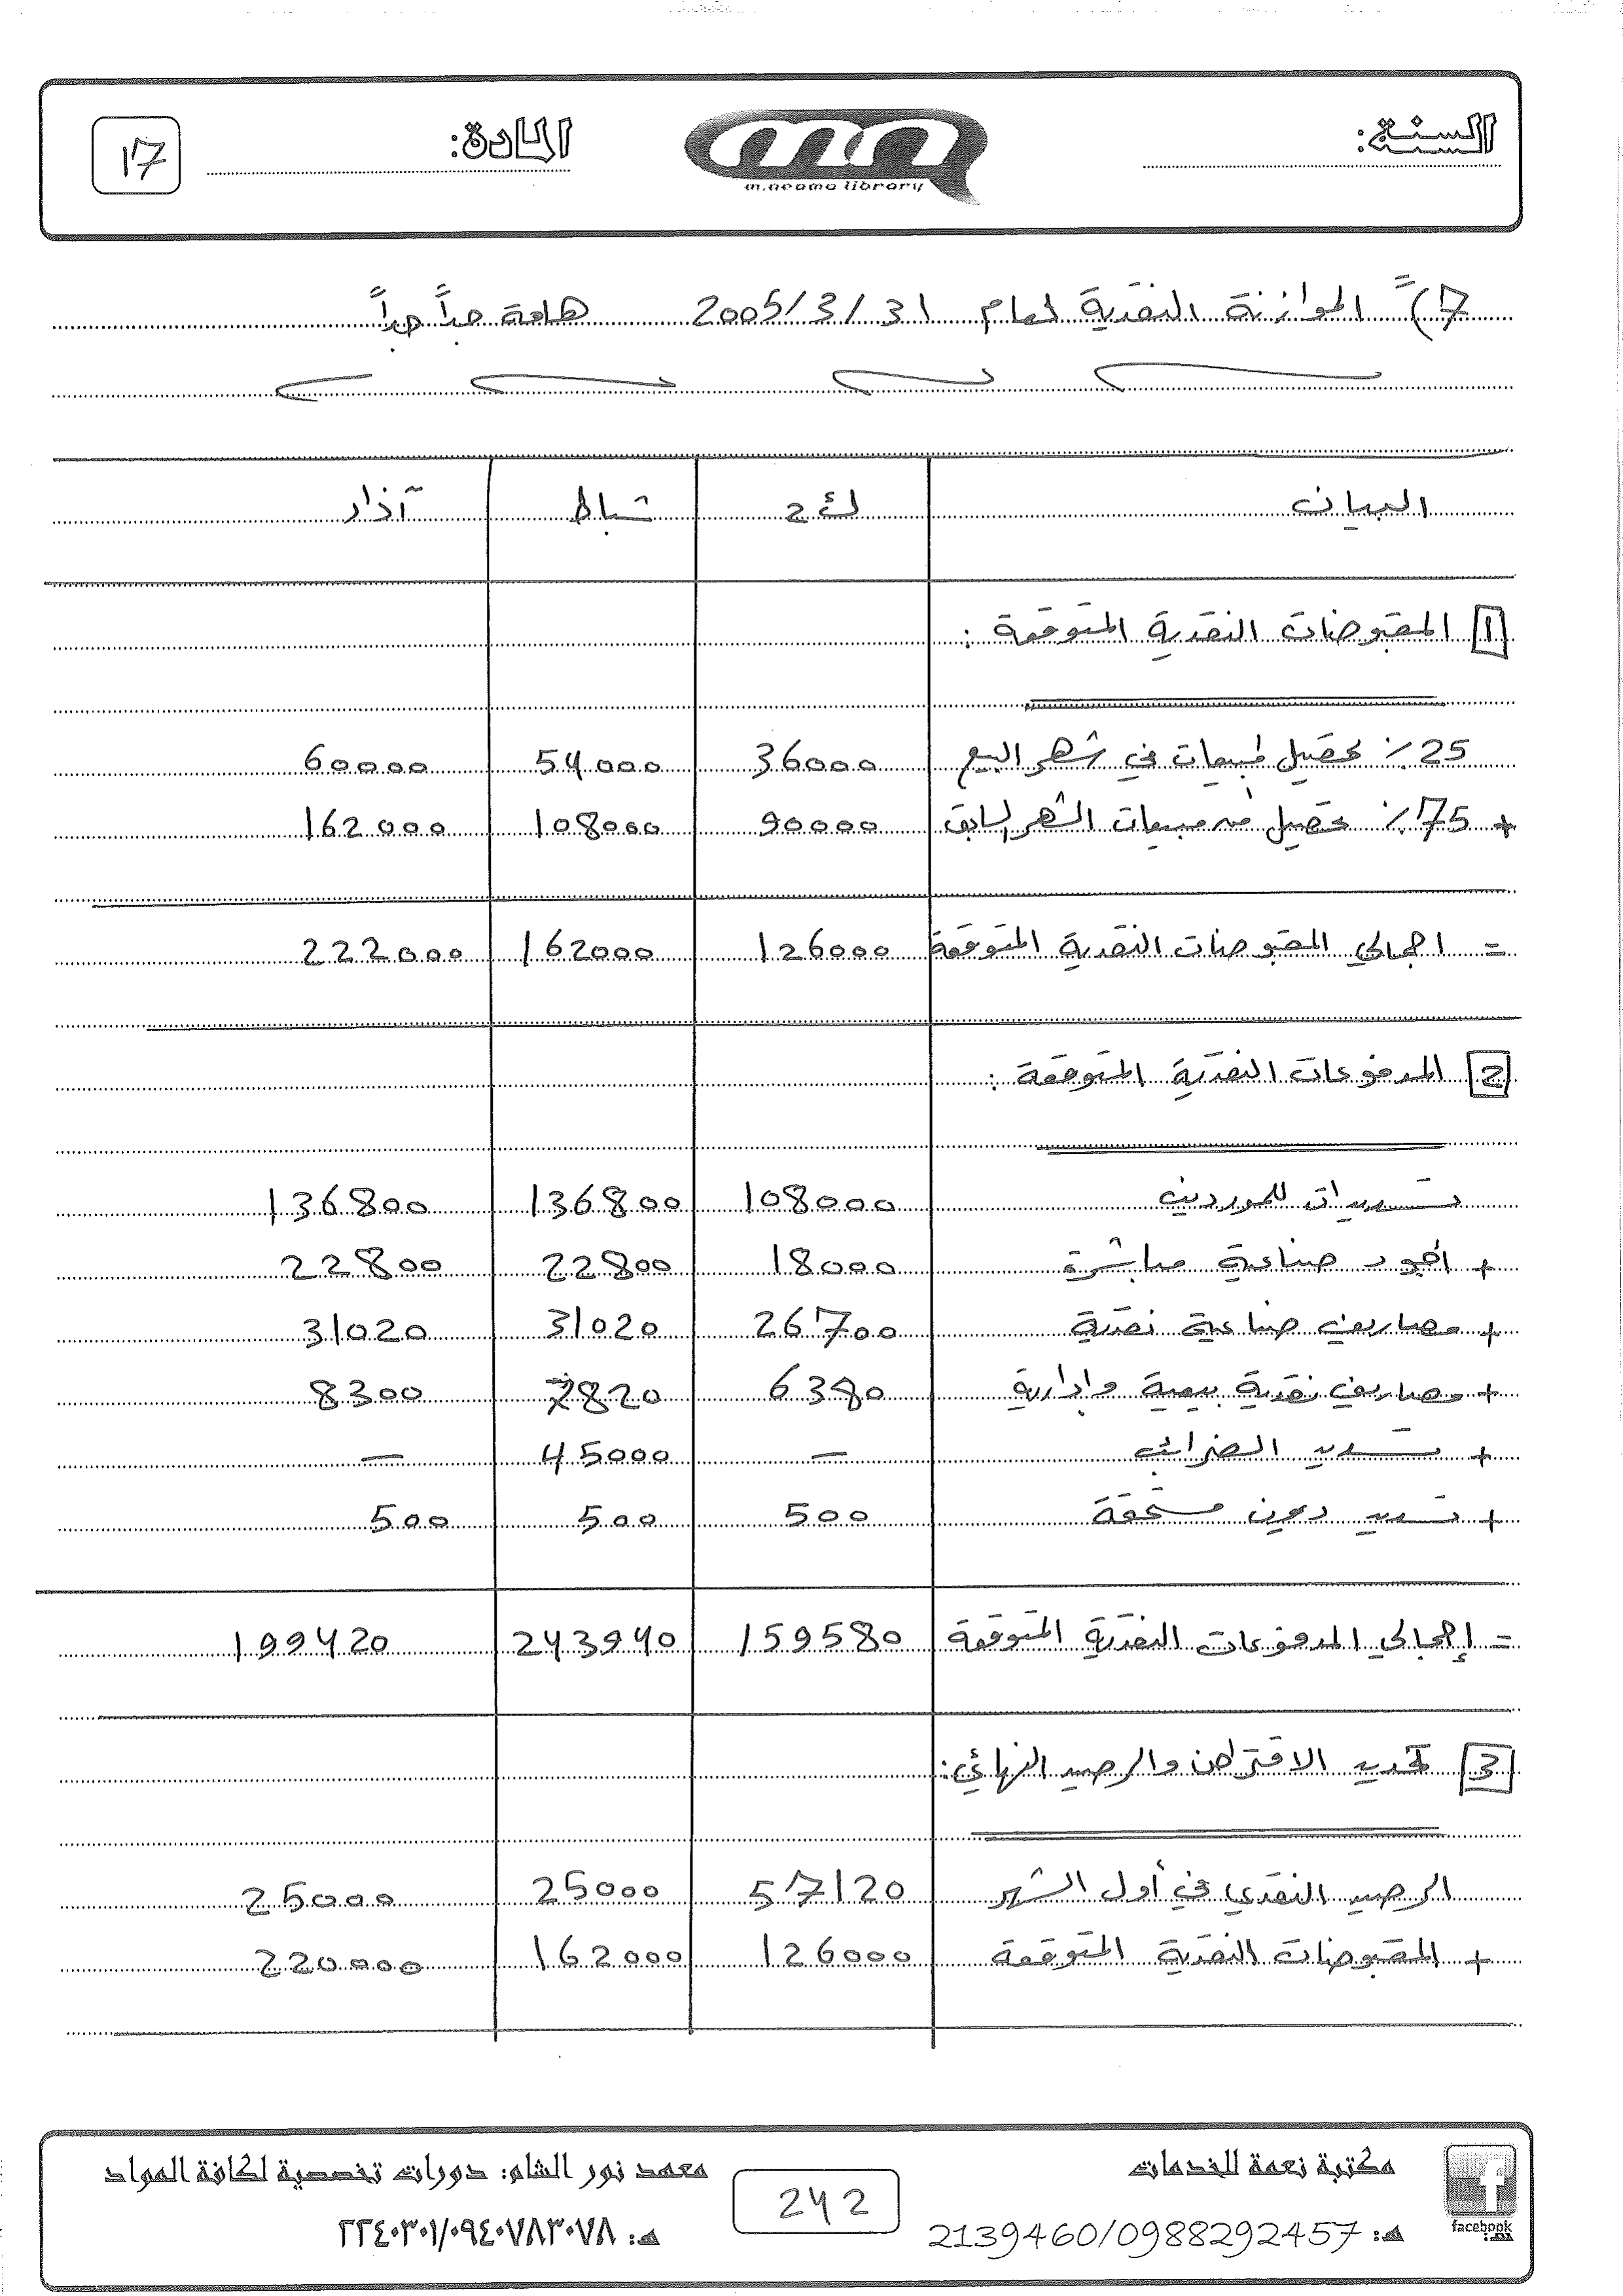 السنة:
m.neama library
المادة:
17
7) الموازنة النقدية لعام 31/3/2005 هامة جداً جداً
البيان ك2 شباط آذار
1 المقبوضات النقدية المتوقعة:
25٪ تحصيل مبيعات في شهر البيع 36000 54000 60000
+ 75٪ تحصيل من مبيعات الشهر السابق 90000 108000 162000
= اجمالي المقبوضات النقدية المتوقعة 126000 162000 222000
2 المدفوعات النقدية المتوقعة:
تسديدات للموردين 108000 136800 136800
+ أجور صناعية مباشرة 18000 22800 22800
+ مصاريف صناعية نقدية 26700 31020 31020
+ مصاريف نقدية بيعية وادارية 6380 7820 8300
+ تسديد الضرائب — 45000 —
+ تسديد ديون مستحقة 500 500 500
= إجمالي المدفوعات النقدية المتوقعة 159580 243940 199420
3 تحديد الاقتراض والرصيد النهائي:
الرصيد النقدي في أول الشهر 57120 25000 25000
+ المقبوضات النقدية المتوقعة 126000 162000 220000
facebook
مكتبة نعمة للخدمات
هـ: 2139460/0988292457
242
معهد نور الشام: دورات تخصصية لكافة المواد
هـ: ٢٢٤٠٣٠١/٠٩٤٠٧٨٣٠٧٨